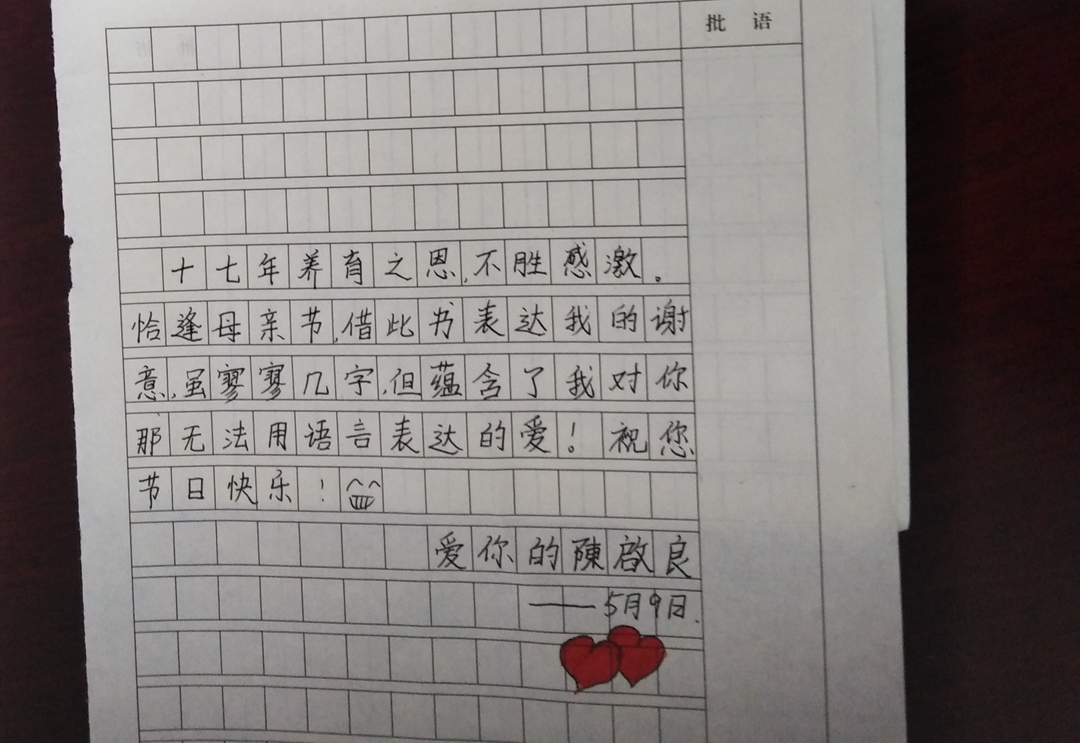 批 语
十七年养育之恩,不胜感激。
恰逢母亲节,借此书表达我的谢
意,虽寥寥几字,但蕴含了我对你
那无法用语言表达的爱！祝您
节日快乐！
爱你的陳啟良
——5月9日.